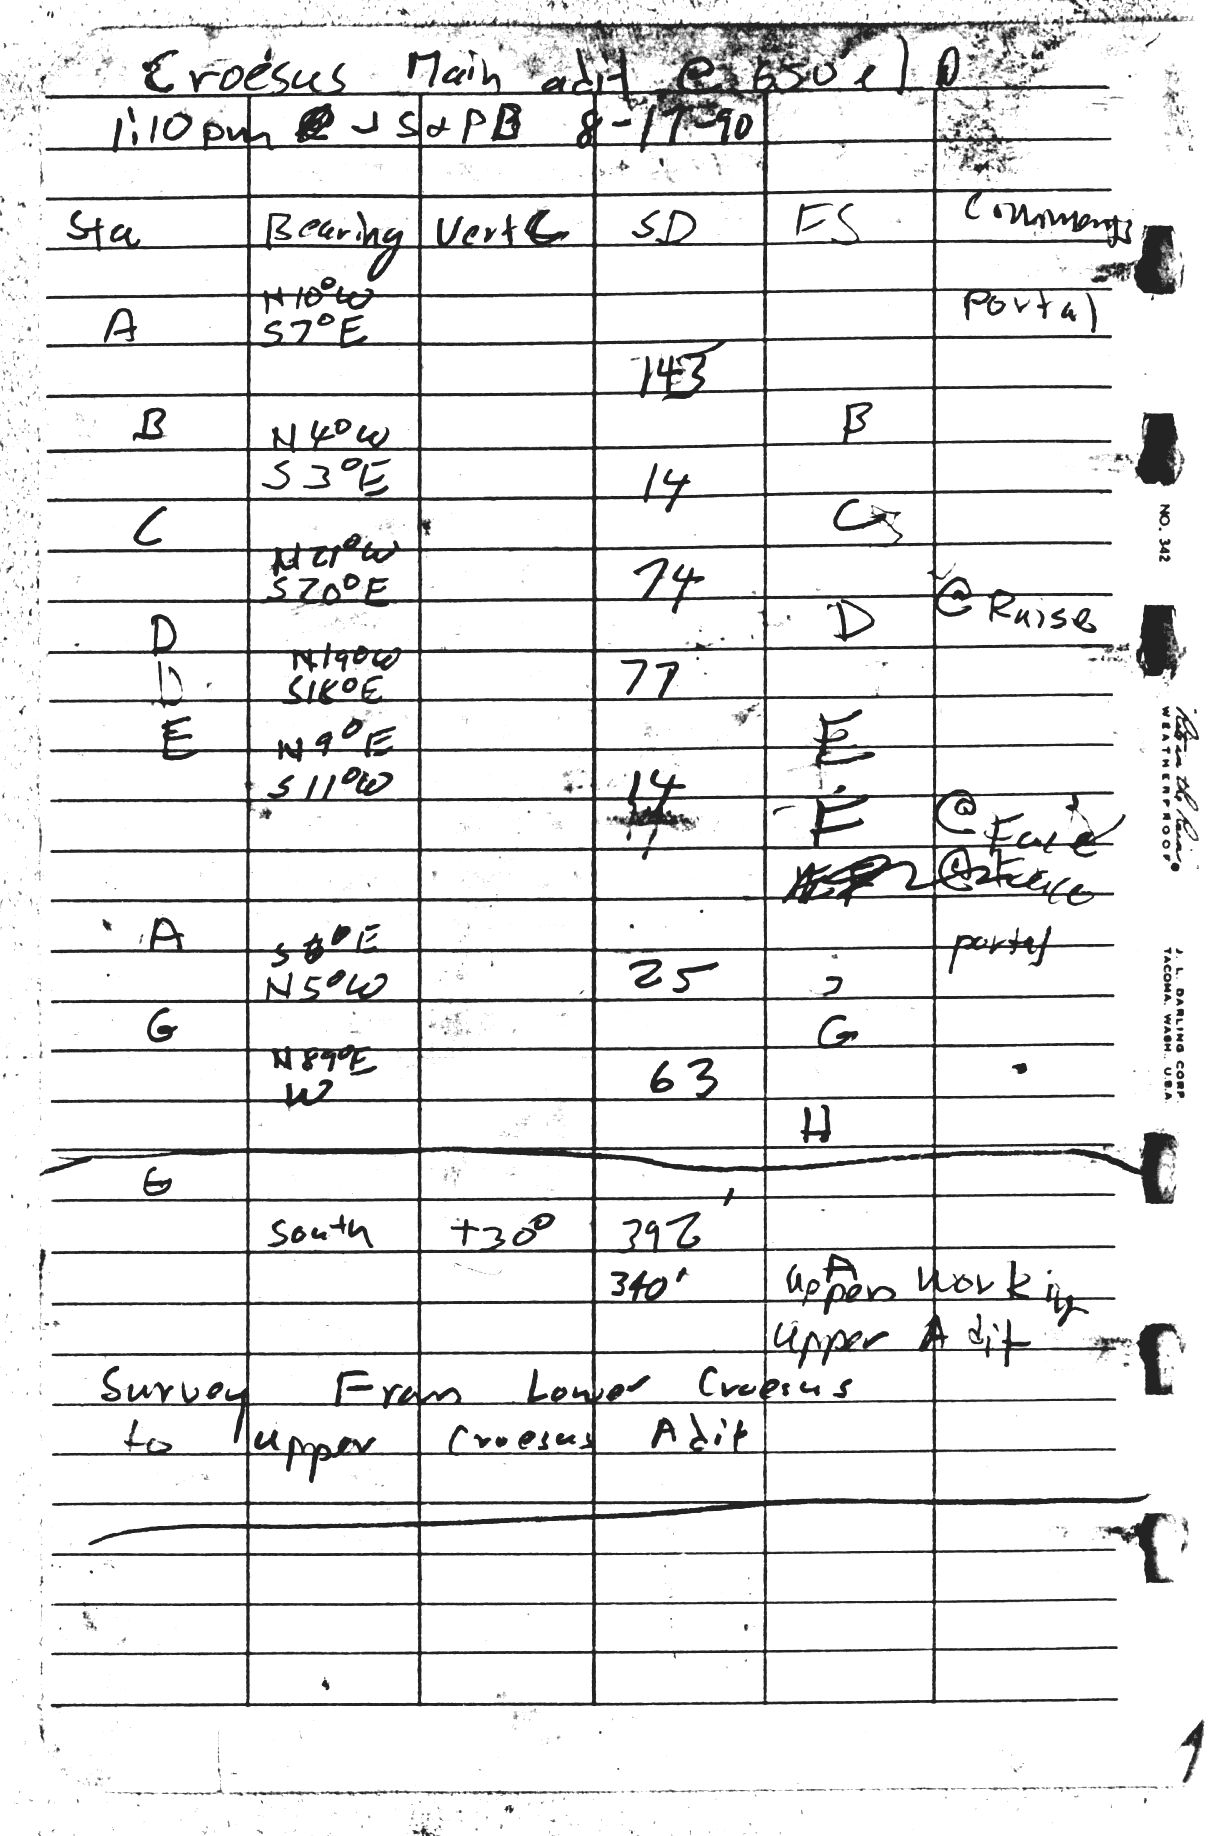 Croesus Main adit @ 650' el
1:10 pm JS & PB 8-17-90
Sta Bearing Vert SD FS Comments
N10°W Portal
A S7°E
143
B N4°W B
S3°E 14
C C
N21°W 74
S20°E @ Raise
D D
N19°W
D S18°E 77
E N9°E E
S11°W 14
E @ Face
A S6°E portal
N5°W 25
G G
N89°E 63
W
H
G
South +30° 392'
340' A upper working
upper Adit
Survey From Lower Croesus
to upper Croesus Adit
NO. 342
Rite in the Rain
WEATHERPROOF
J. L. DARLING CORP.
TACOMA, WASH. U.S.A.